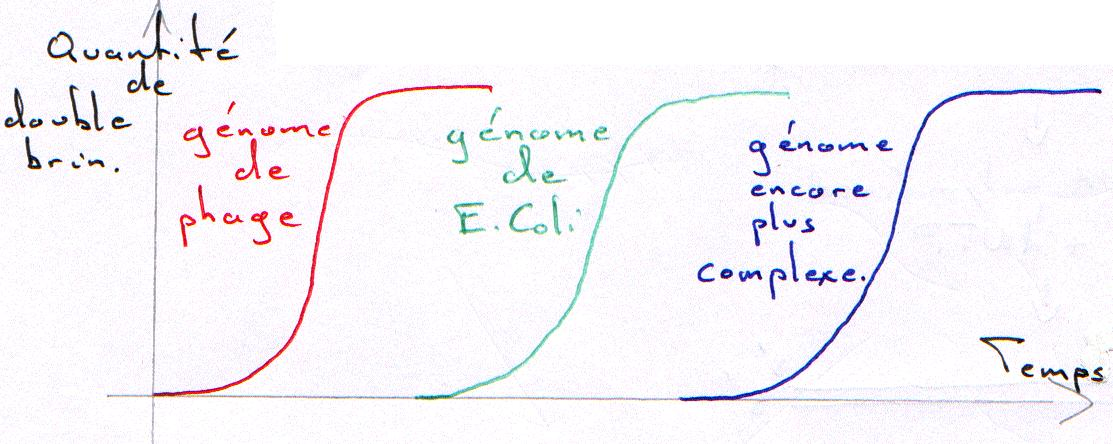 Quantité
de
double
brin.
génome
de
phage
génome
de
E. Coli
génome
encore
plus
complexe.
Temps